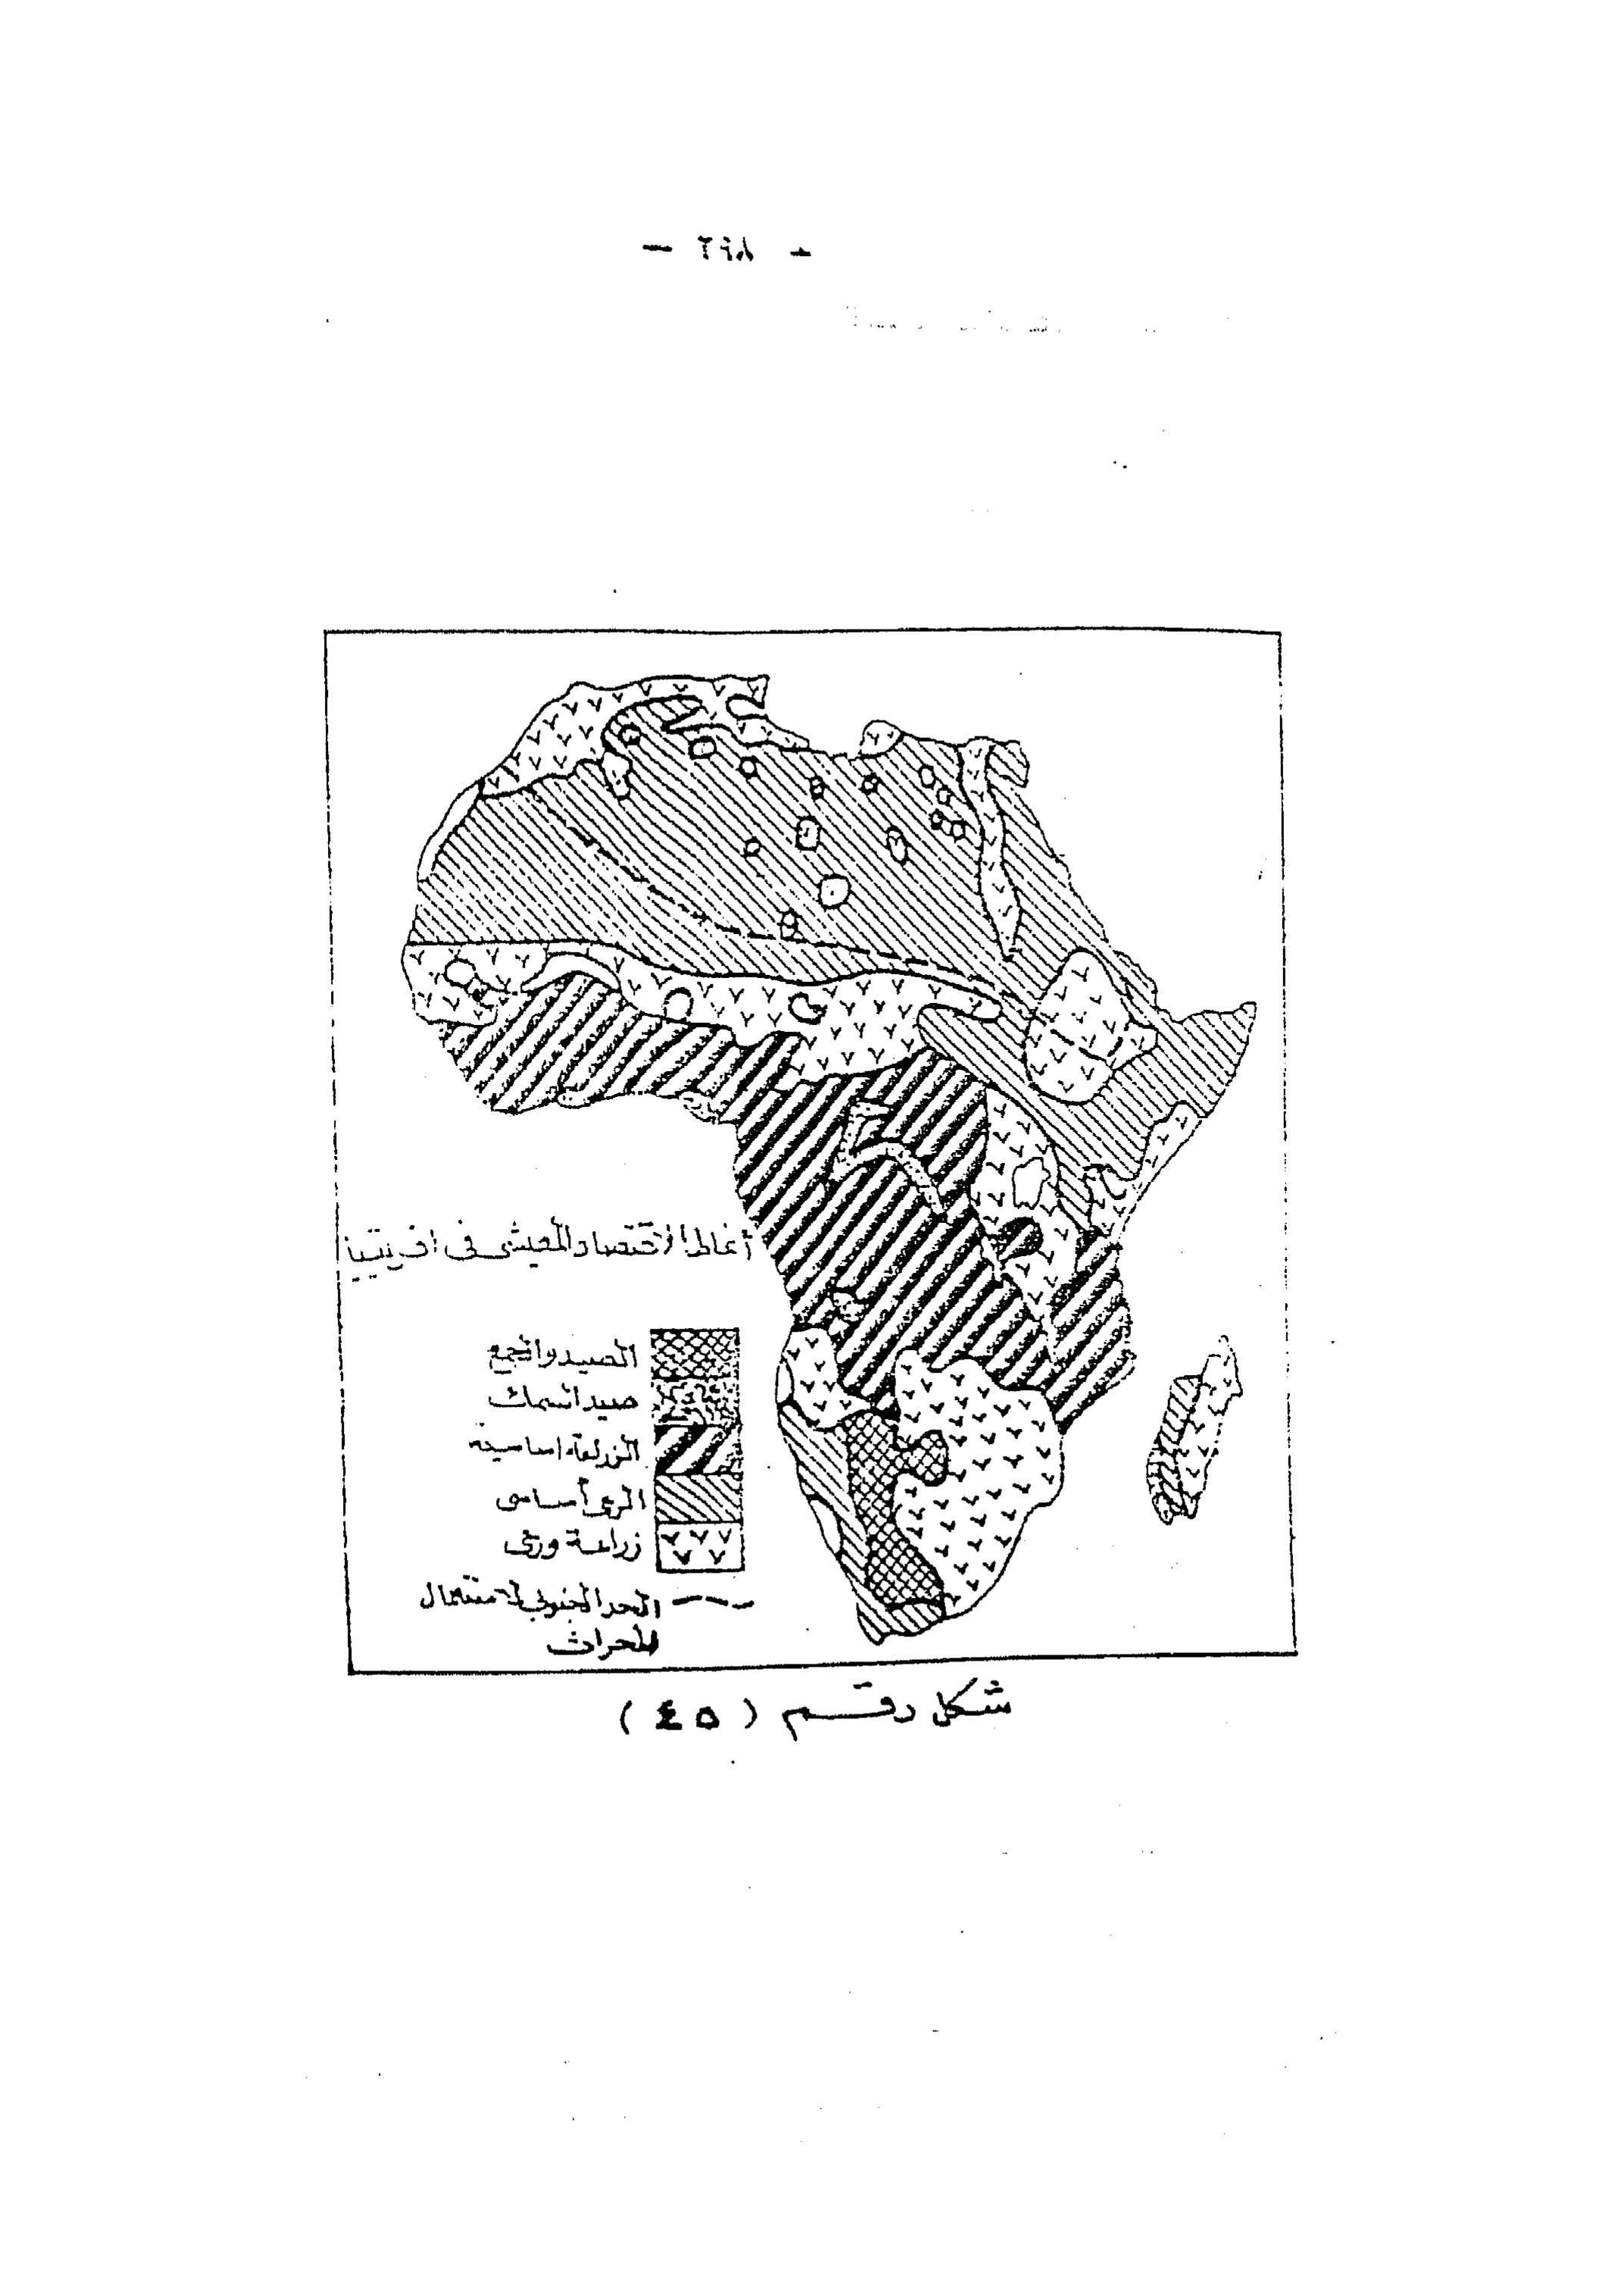 — ٢٩٨ —
أنماط الاقتصاد المعيشى فى افريقيا
الصيد والجمع
صيد السمك
الزراعة اساسية
الرعى أساسى
زراعة ورعى
الحد الجنوبى لاستعمال
المحراث
شكل رقم ( ٤٥ )